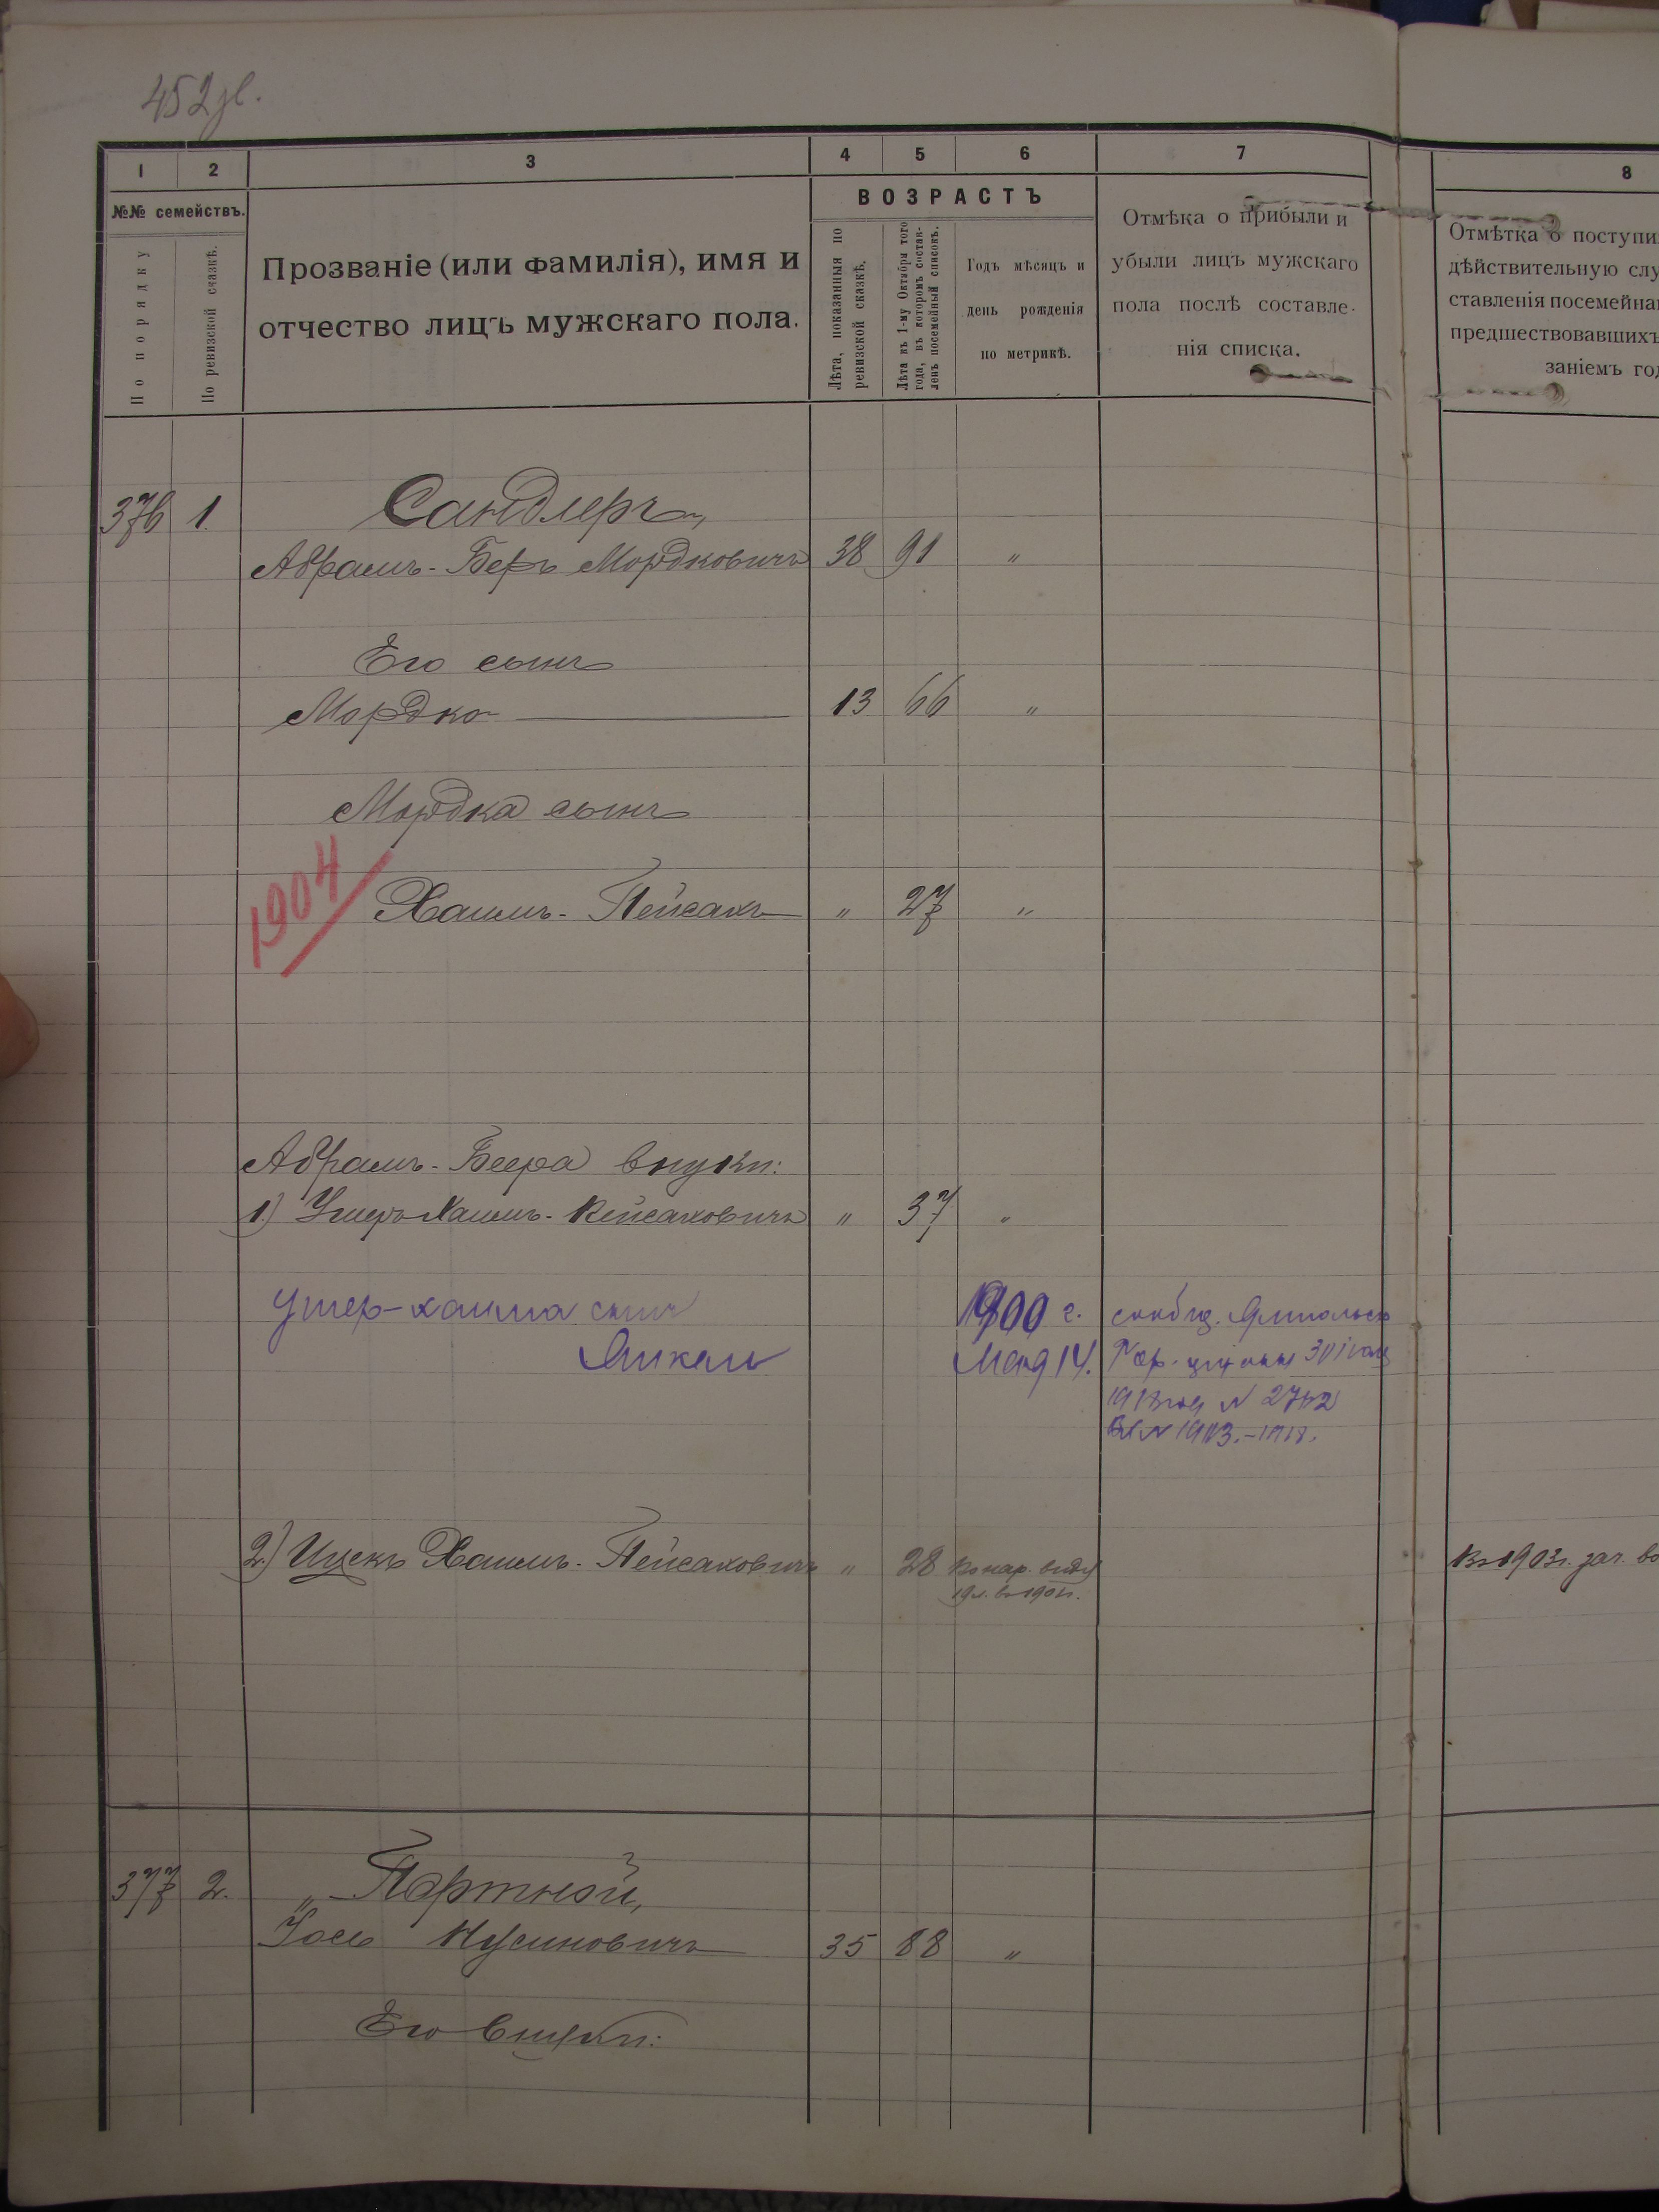 452
1 2 3 4 5 6 7 8
№№ семействъ.
По порядку
По ревизской сказкѣ.
Прозваніе (или фамилія), имя и
отчество лицъ мужскаго пола.
ВОЗРАСТЪ
Лѣта, показанныя по
ревизской сказкѣ.
Лѣта къ 1-му Октября того
года, въ которомъ состав-
ленъ посемейный списокъ.
Годъ мѣсяцъ и
день рожденія
по метрикѣ.
Отмѣка о прибыли и
убыли лицъ мужскаго
пола послѣ составле-
нія списка.
Отмѣтка о поступи
дѣйствительную слу
ставленія посемейна
предшествовавшихъ
заніемъ год
376 1. Сандлеръ,
Абрамъ-Беръ Мордковичъ 38 91 "
Его сынъ
Мордко 13 66 "
Мордка сынъ
1904
Хаимъ-Пейсахъ " 27 "
Абрамъ-Беера внуки:
1) Ушеръ Хаимъ-Пейсаховичъ " 37 "
Ушер-хаима сынъ 1900 г.
Янкель Мая 14.
N 2762
2) Ицекъ Хаимъ-Пейсаховичъ " 28 по нар. виду
19 л. въ 190 г.
Въ 1903 г. зач. во
377 2. „Портной,
Іось Нусиновичъ 35 88 "
Его внуки: